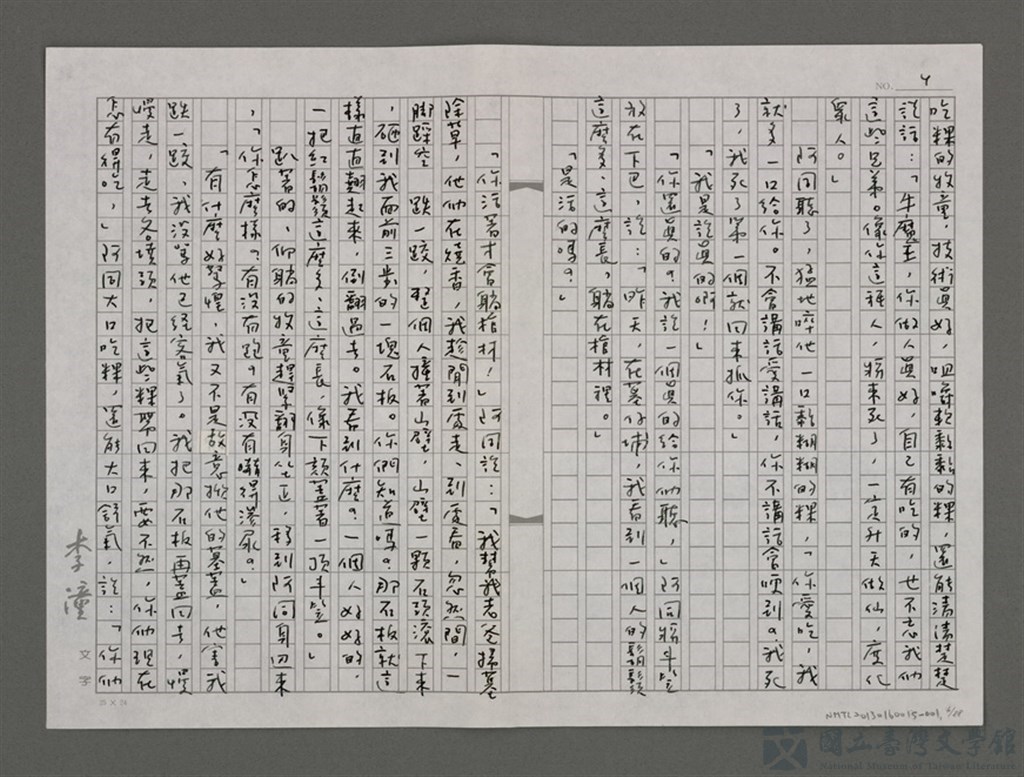 NO. 4
吃粿的牧童,技術真好,咀嚼乾黏黏的粿,還能清清楚楚
說話:「牛魔王,你做人真好,自己有吃的,也不忘我們
這些兄弟。像你這種人,將來死了,一定升天做仙,度化
眾人。」
阿同聽了,猛地啐他一口黏糊糊的粿,「你愛吃,我
就多一口給你。不會講話愛講話,你不講話會哽到?我死
了,我死了第一個就回來抓你。」
「我是說真的啊!」
「你還真的?我說一個真的給你們聽,」阿同將斗笠
放在下巴,說:「昨天,在墓仔埔,我看到一個人的鬍鬚
這麼多、這麼長,躺在棺材裡。」
「是活的嗎?」
「你活著才會躺棺材!」阿同說:「我幫我老爸掃墓
除草,他們在燒香,我趁閒到處走、到處看,忽然間,一
腳踩空,跌一跤,整個人撞著山壁,山壁一顆石頭滾下來
,砸到我面前三步的一塊石板。你們知道嗎?那石板就這
樣直直翹起來,倒翻過去。我看到什麼?一個人好好的,
一把紅鬍鬚這麼多、這麼長,像下頦蓋著一頂斗笠。」
趴著的、仰躺的牧童趕緊翻身坐正,移到阿同身四來
,「你怎麼樣?有沒有跑?有沒有嚇得滲尿?」
「有什麼好驚惶,我又不是故意掀他的墓蓋,他害我
跌一跤、我沒罵他已經客氣了。我把那石板再蓋回去,慢
慢走,走去各墳頭,把這些粿帶回來,要不然,你們現在
怎有得吃,」阿同大口吃粿,還能大口舒氣,說:「你們
李潼
文字
25 X 24
NMTL20130160015-001, 4/28
國立臺灣文學館
National Museum of Taiwan Literature